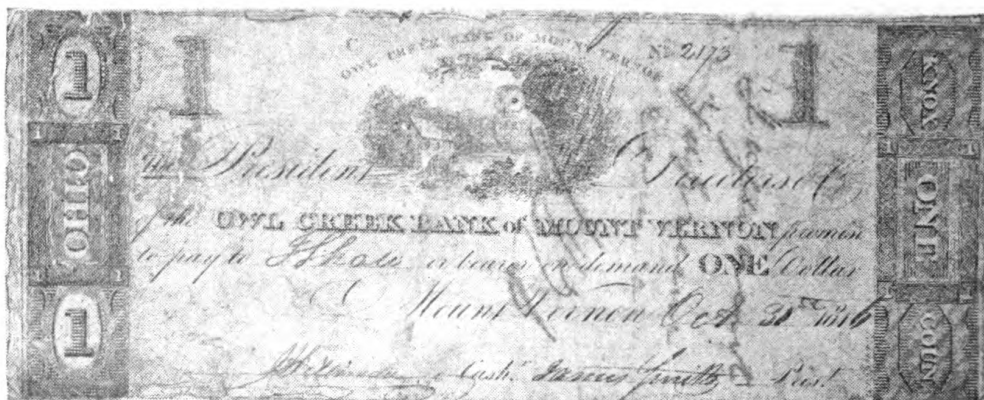 C
OWL CREEK BANK OF MOUNT VERNON
No 2173
1 1
1
OHIO
1
KNOX
ONE
COUN
The President
of the OWL CREEK BANK of MOUNT VERNON promise
to pay to or bearer on demand ONE Dollar
Mount Vernon Oct. 31st 1816
Cashr James Smith Prest